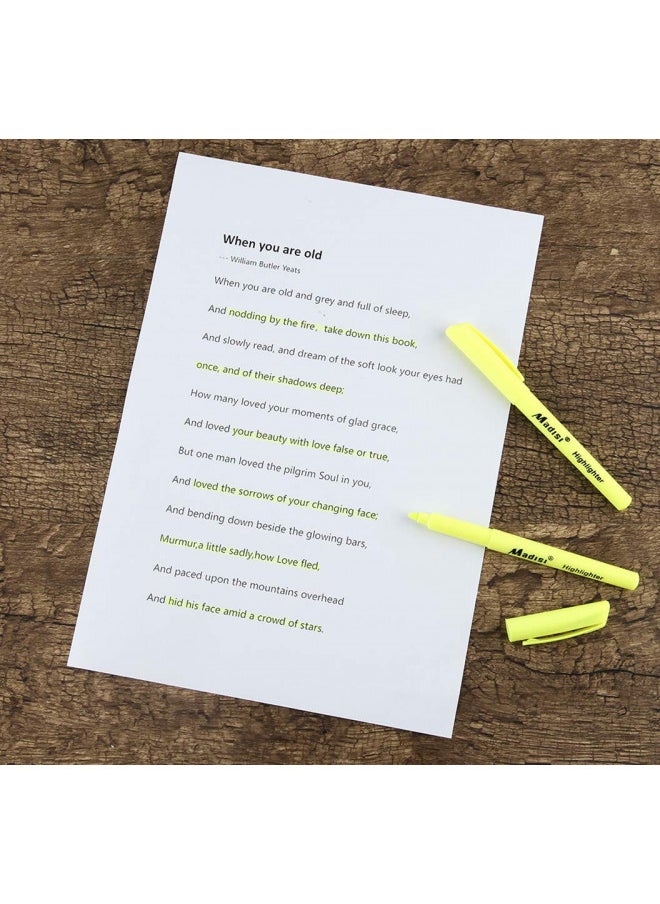 When you are old
--- William Butler Yeats
When you are old and grey and full of sleep,
And nodding by the fire, take down this book,
And slowly read, and dream of the soft look your eyes had
once, and of their shadows deep;
How many loved your moments of glad grace,
And loved your beauty with love false or true,
But one man loved the pilgrim Soul in you,
And loved the sorrows of your changing face;
And bending down beside the glowing bars,
Murmur,a little sadly,how Love fled,
And paced upon the mountains overhead
And hid his face amid a crowd of stars.
Madisi® Highlighter
Madisi® Highlighter